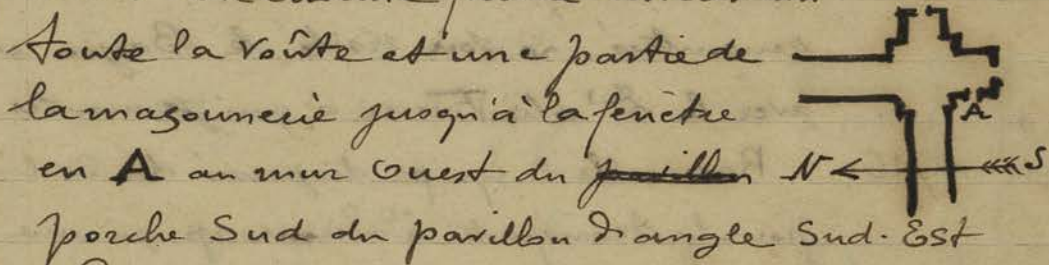 toute la voûte et une partie de
la maçonnerie jusqu'à la fenêtre
en A au mur Ouest du pavillon
porche Sud du pavillon d'angle Sud-Est
A
N S